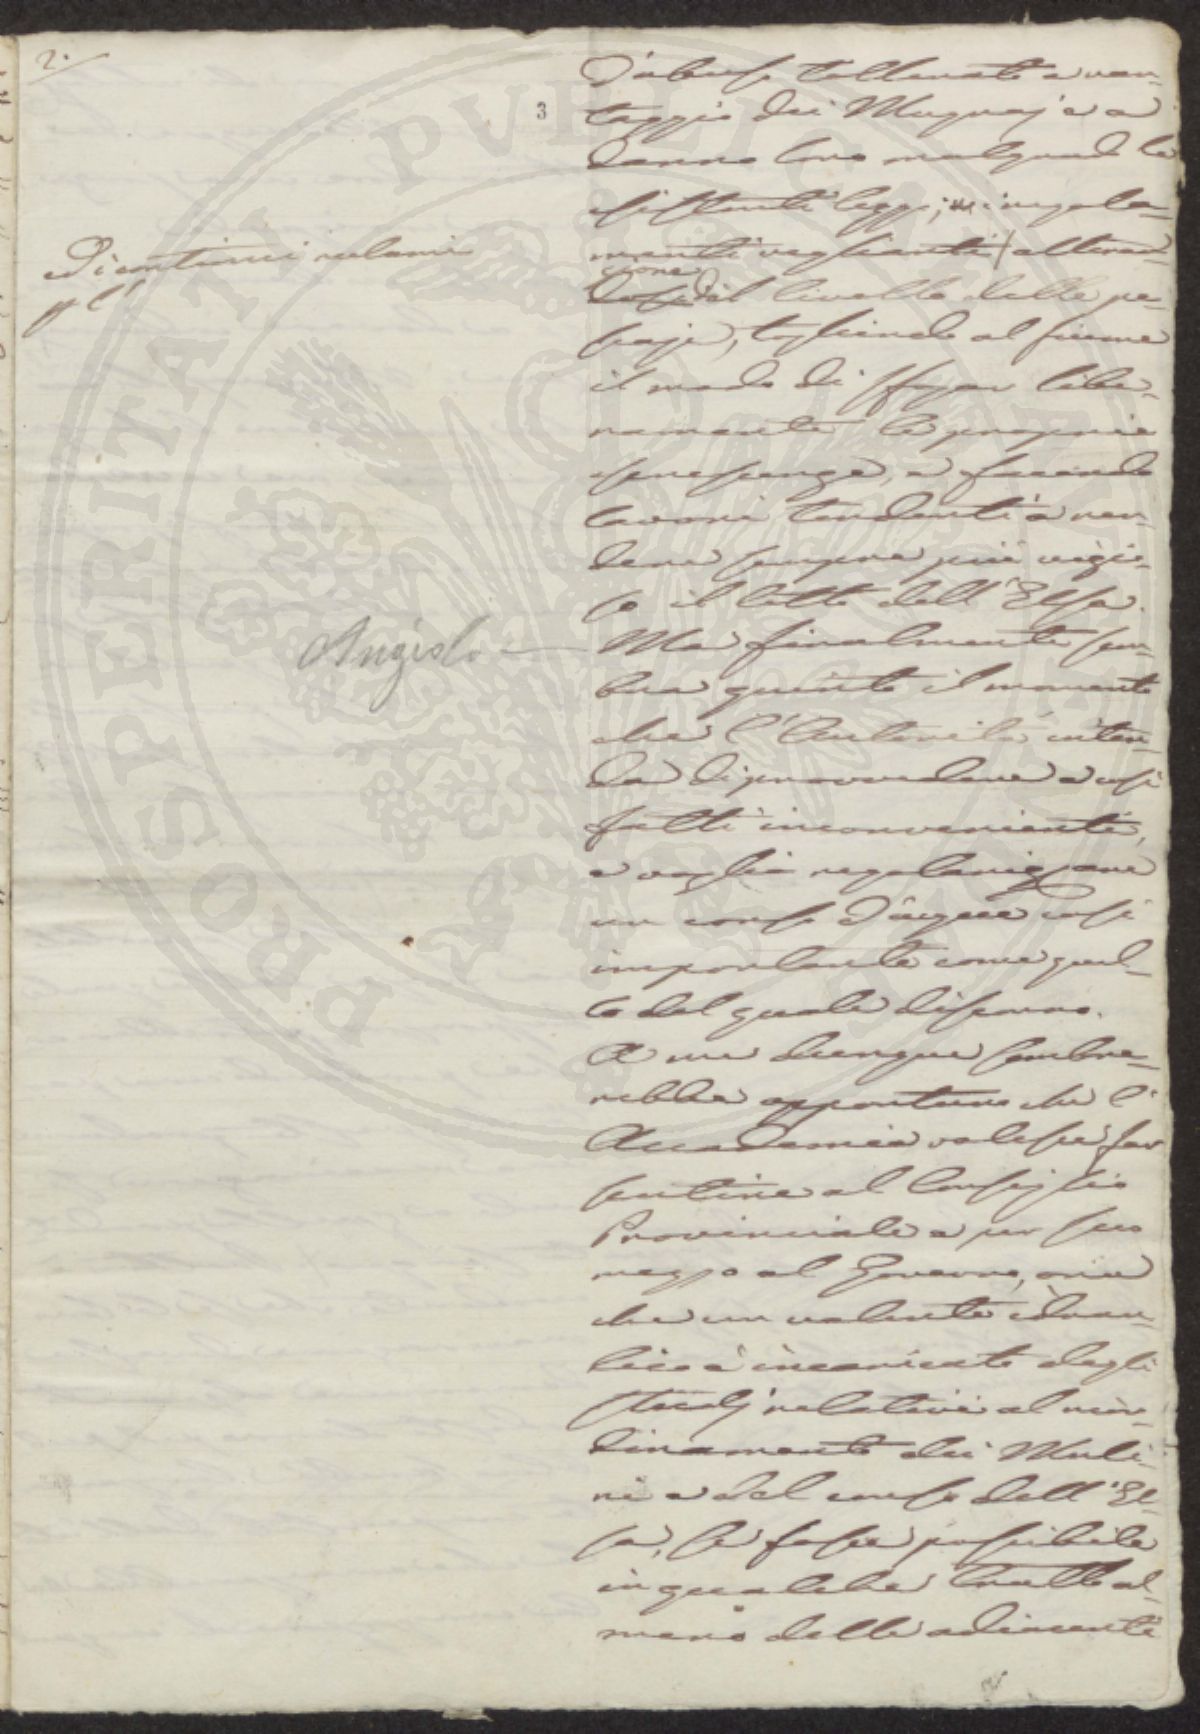 2.
3
D'abuso tollerato a van-
taggio dei Mugnaj e a
danno loro malgrado le
esistenti leggi, i regola-
menti veglianti, alteran-
done
dosi il livello delle pe-
scaje, togliendo al fiume
il modo di sfogar libe-
ramente le proprie
escrescenze, e facendo
lavori tendenti a ren-
dere sempre più vizio-
so il letto dell'Elsa.
Ma finalmente sem-
bra giunto il momento
che l'Autorità inten-
da di provvedere a così
fatti inconvenienti,
e voglia regolarizzare
un corso d'acque così
importante come quel-
lo del quale discorro.
A me dunque sembre-
rebbe opportuno che l'
Accademia volesse far
sentire al Consiglio
Provinciale e per suo
mezzo al Governo, ora
che un valente idrau-
lico è incaricato degli
studj relativi al rior-
dinamento dei Muli-
ni e del corso dell'El-
sa, se fosse possibile
in qualche tratto al-
meno delle adiacenti
ed i continui reclami
p l'
Angiolo
PROSPERITATI PVBLICAE AVGENDAE